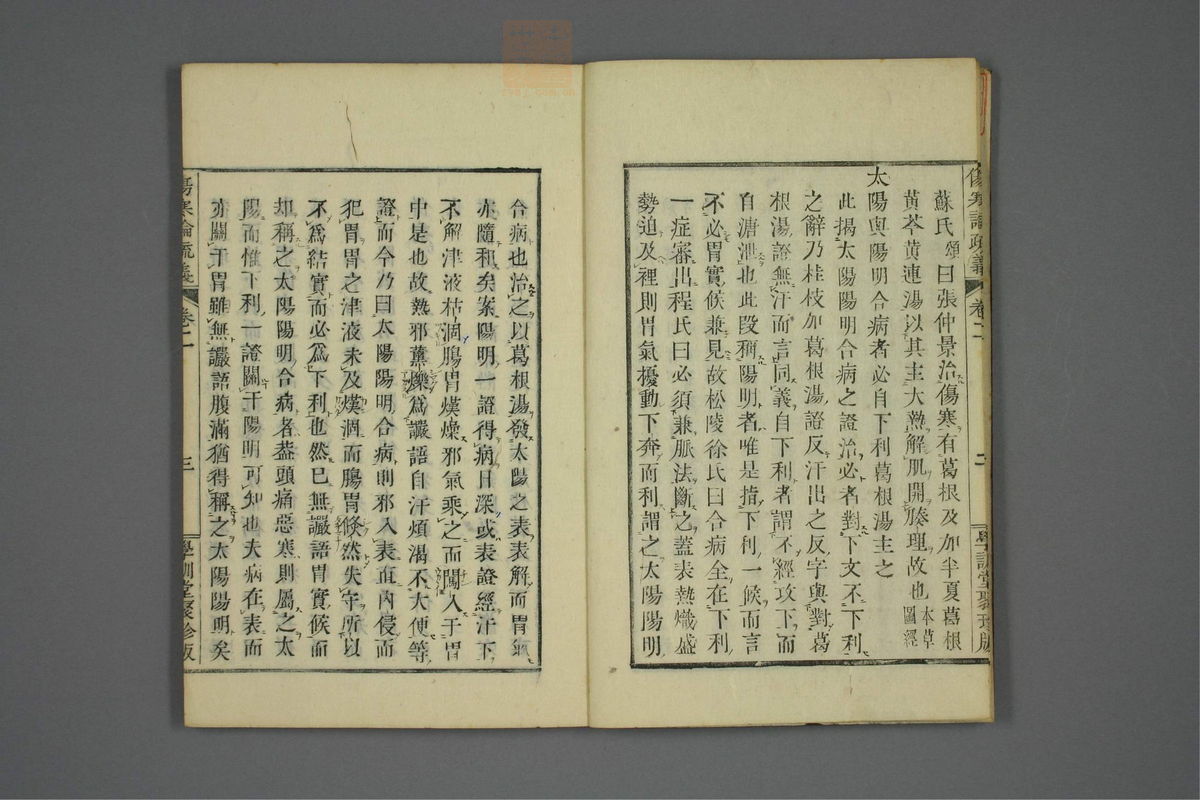 傷寒論疏義 卷二 二 學訓堂聚珍版
蘇氏頌曰張仲景治傷寒有葛根及加半夏葛根
黃芩黃連湯以其主大熱解肌開腠理故也本草圖經
太陽與陽明合病者必自下利葛根湯主之
此揭太陽陽明合病之證治必者對下文不下利
之辭乃桂枝加葛根湯證反汗出之反字與對葛
根湯證無汗而言同義自下利者謂不經攻下而
自溏泄也此段稱陽明者唯是指下利一候而言
不必胃實候兼見故松陵徐氏曰合病全在下利
一症審出程氏曰必須兼脈法斷之蓋表熱熾盛
勢迫及裡則胃氣擾動下奔而利謂之太陽陽明
合病也治之以葛根湯發太陽之表表解而胃氣
亦隨和矣案陽明一證得病日深或表證經汗下
不解津液枯涸腸胃熯燥邪氣乘之而闖入于胃
中是也故熱邪薰爍爲讝語自汗煩渴不大便等
證而今乃曰太陽陽明合病則邪入表直內侵而
犯胃胃之津液未及熯涸而腸胃倏然失守所以
不爲結實而必爲下利也然已無讝語胃實候而
却稱之太陽陽明合病者蓋頭痛惡寒則屬之太
陽而惟下利一證關于陽明可知也夫病在表而
亦關于胃雖無讝語腹滿猶得稱之太陽陽明矣
傷寒論疏義 卷二 三 學訓堂聚珍版